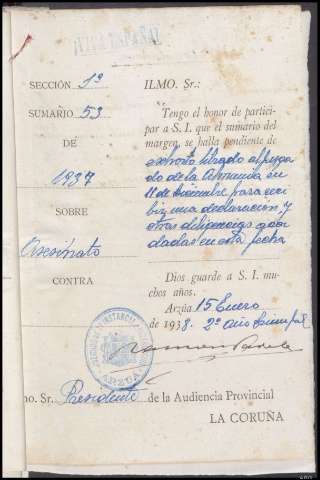 SECCIÓN 1ª
SUMARIO 53
DE
1937
SOBRE
Asesinato
CONTRA
ILMO. Sr.:
Tengo el honor de partici-
par a S. I. que el sumario del
margen, se halla pendiente de
exhorto librado al juzga
do de la Coruña en
11 de Diciembre para reci
bir una declaración y
otras diligencias acor
dadas en esta fecha
Dios guarde a S. I. mu-
chos años.
Arzúa 15 Enero
de 1938. 2º año triunfal
ARZÚA
no. Sr. Presidente de la Audiencia Provincial
LA CORUÑA